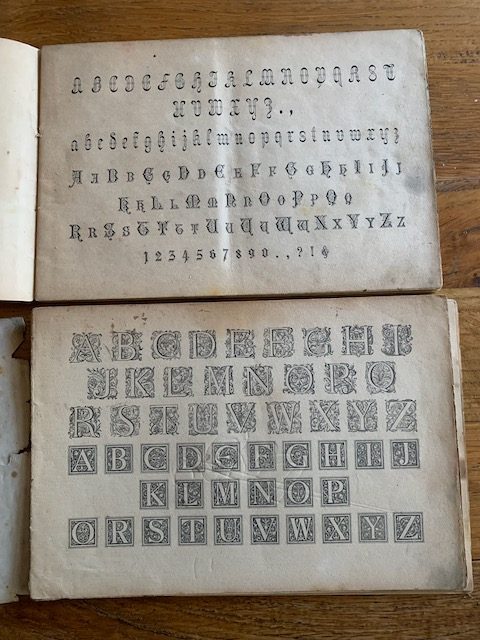 ABCDEFGHIJKLMNOPQRST
UVWXYZ.,
abcdefghijklmnopqrstuvwxyz
AABBCCDDEEFFGGHHIIJJ
KKLLMMNNOOPPQQ
RRSSTTUUVVWWXXYYZZ
1234567890.,?!&
ABCDEFGHI
JKLMNOPQ
RSTUVWXYZ
ABCDEFGHIJ
KLMNOP
QRSTUVWXYZ